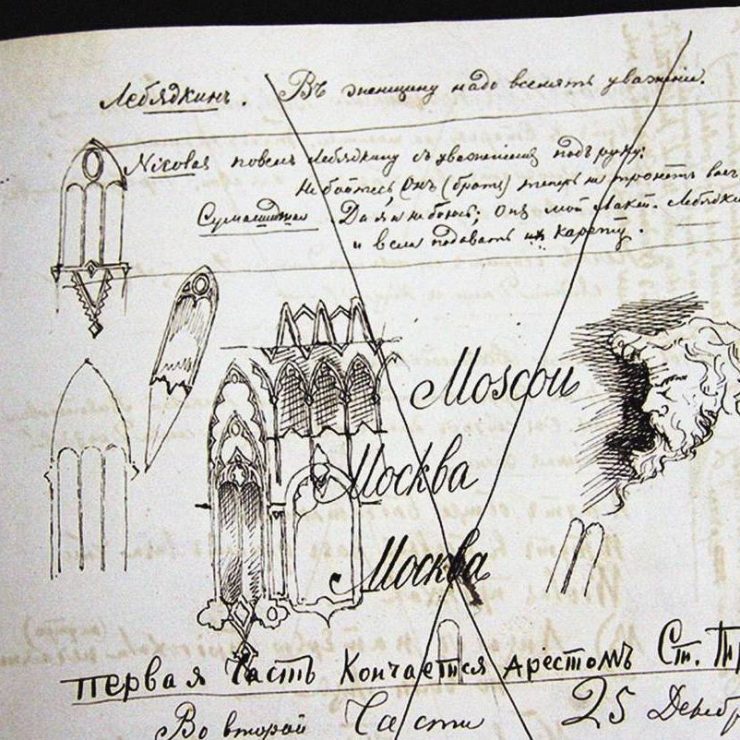 Лебядкинъ. Въ женщину надо вселять уваженіе.
Nicolas повелъ Лебядкину съ уваженіемъ подъ руку:
Не бойтесь, (Онъ (братъ) теперь не тронетъ васъ
Сумасшедшая. Да я и не боюсь; онъ мой лакей. Лебядки
и велъ подавать карету.
Moscou
Москва
Москва
Первая Часть Кончается арестомъ Ст. Тр
Во второй Части 25 Декабр